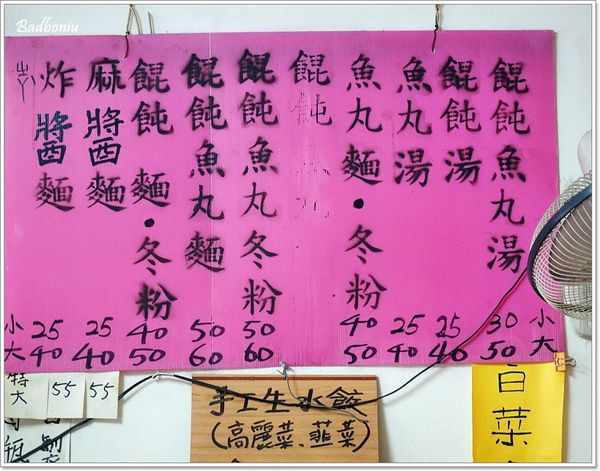 Badboniu
小 大
餛飩魚丸湯 30 50
餛飩湯 25 40
魚丸湯 25 40
魚丸麵•冬粉 40 50
餛飩
餛飩魚丸冬粉 50 60
餛飩魚丸麵 50 60
餛飩麵•冬粉 40 50
麻醬麵 25 40
炸醬麵 25 40
小 大
特大 55 55
手工生水餃
(高麗菜.韭菜)
白菜